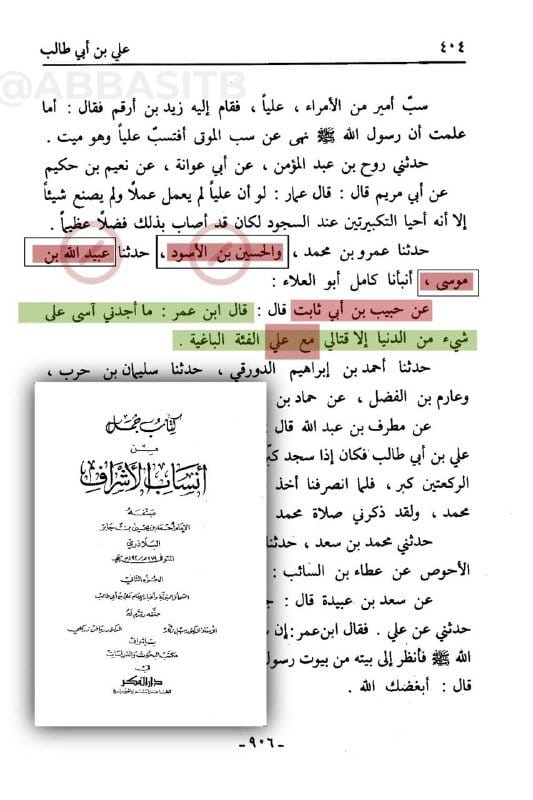 ٤٠٤
علي بن أبي طالب
@ABBASITB
سبّ أمير من الأمراء ، علياً ، فقام إليه زيد بن أرقم فقال : أما
علمت أن رسول الله ﷺ نهى عن سب الموتى أفتسبّ علياً وهو ميت .
حدثني روح بن عبد المؤمن ، عن أبي عوانة ، عن نعيم بن حكيم
عن أبي مريم قال : قال عمار : لو أن علياً لم يعمل عملًا ولم يصنع شيئاً
إلا أنه أحيا التكبيرتين عند السجود لكان قد أصاب بذلك فضلًا عظيماً .
حدثنا عمرو بن محمد ، والحسين بن الأسود ، حدثنا عبيد الله بن
موسى ، أنبأنا كامل أبو العلاء :
عن حبيب بن أبي ثابت قال : قال ابن عمر : ما أجدني آسى على
شيء من الدنيا إلا قتالي مع علي الفئة الباغية .
حدثنا أحمد بن إبراهيم الدورقي ، حدثنا سليمان بن حرب ،
وعارم بن الفضل ، عن حماد بن
عن مطرف بن عبد الله قال
علي بن أبي طالب فكان إذا سجد كبّ
الركعتين كبر ، فلما انصرفنا أخذ
محمد ، ولقد ذكرني صلاة محمد
حدثني محمد بن سعد ، حدثنا
الأحوص عن عطاء بن السائب :
عن سعد بن عبيدة قال :
حدثني عن علي . فقال ابن عمر : إن
الله ﷺ فأنظر إلى بيته من بيوت رسول
قال : أبغضك الله .
كتاب جمل
من
أنساب الأشراف
صنفه
الإمام أحمد بن يحيى بن جابر
البلاذري
المتوفى ٢٧٩هـ
الجزء الثاني
حققه وقدم له
الأستاذ الدكتور سهيل زكار
الدكتور رياض زركلي
بإشراف
مكتب البحوث والدراسات
في
دار الفكر
- ٩٠٦ -